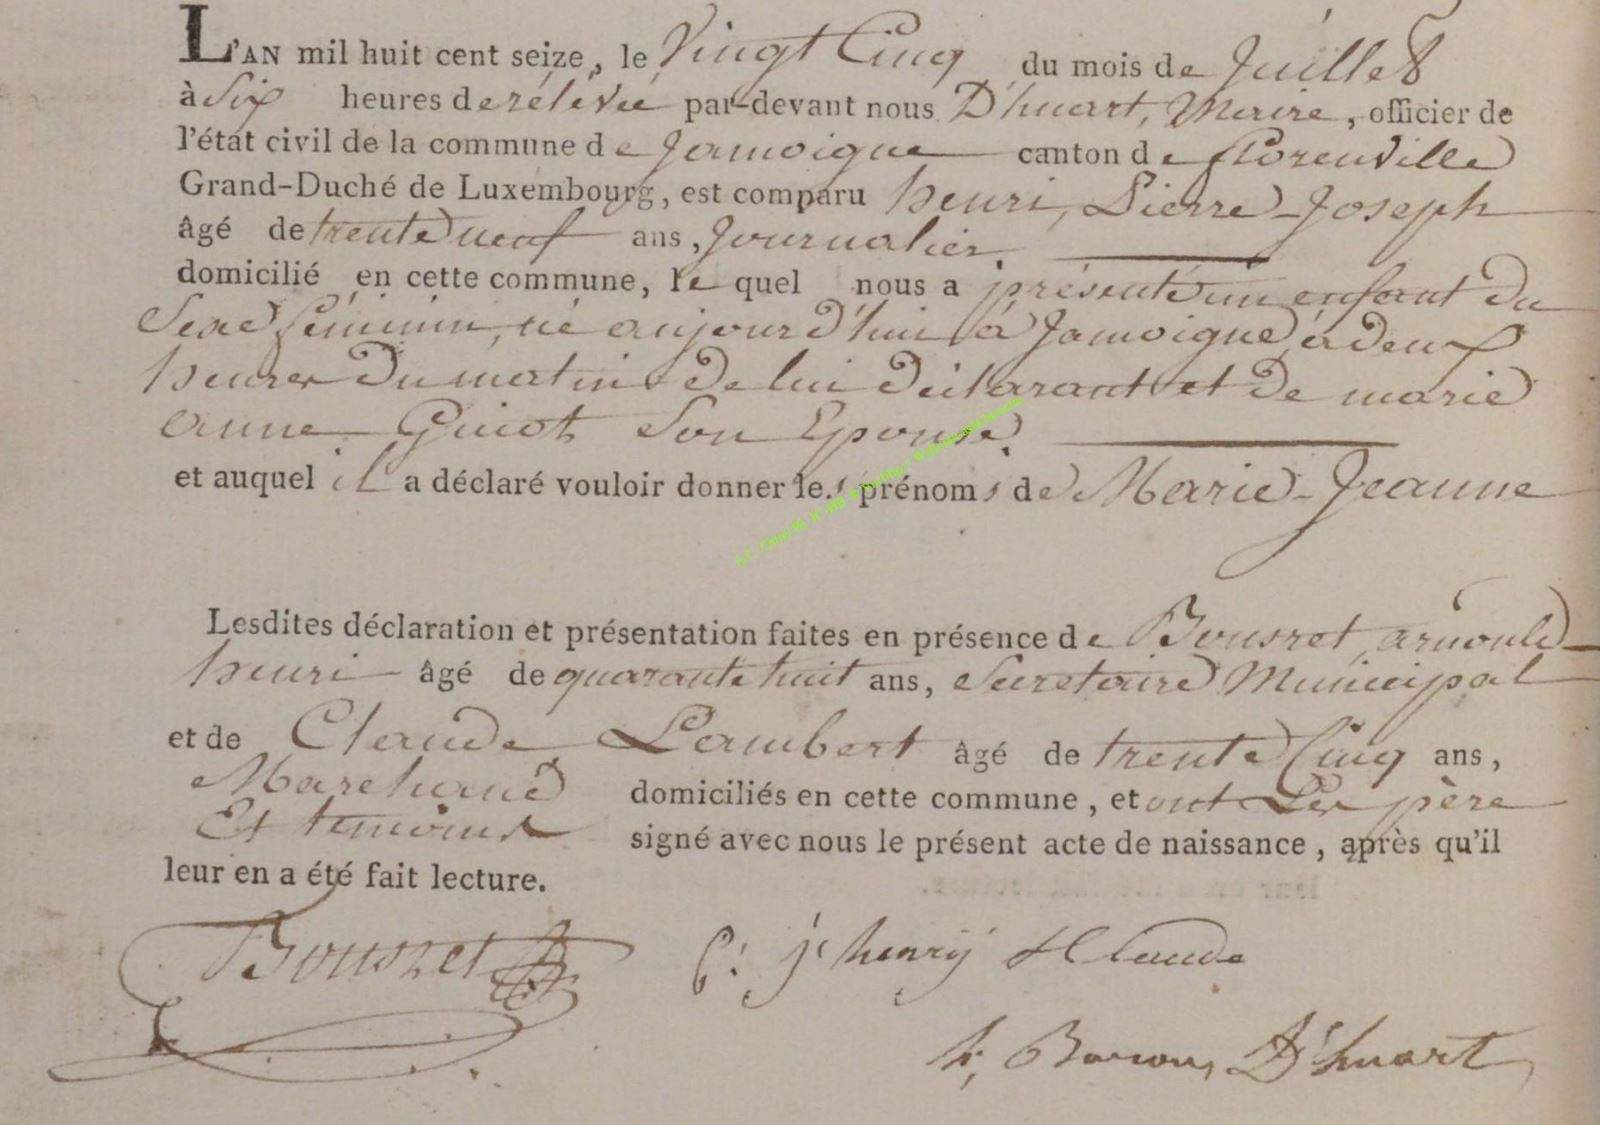 L'AN mil huit cent seize, le Vingt Cinq du mois de Juillet
à Six heures de rélévée par-devant nous D'huart, Maire, officier de
l'état civil de la commune de Jamoigne canton de florenville
Grand-Duché de Luxembourg, est comparu henri, Pierre-Joseph
âgé de trente neuf ans, Journalier.
domicilié en cette commune, le quel nous a présenté un enfant du
Sexe féminin, né aujourd'hui à Jamoigne à deux
heures du matin de lui déclarant et de marie
anne Guiot Son Epouse.
et auquel il a déclaré vouloir donner les prénoms de Marie-Jeanne
Lesdites déclaration et présentation faites en présence de Bousret, arnould
henri âgé de quarante huit ans, Secretaire Municipal
et de Claude Lambert âgé de trente Cinq ans,
Marchand domiciliés en cette commune, et ont Les père
Et temoins signé avec nous le présent acte de naissance, après qu'il
leur en a été fait lecture.
Bousret P: j henrÿ Claude
h, Baron, D'huart